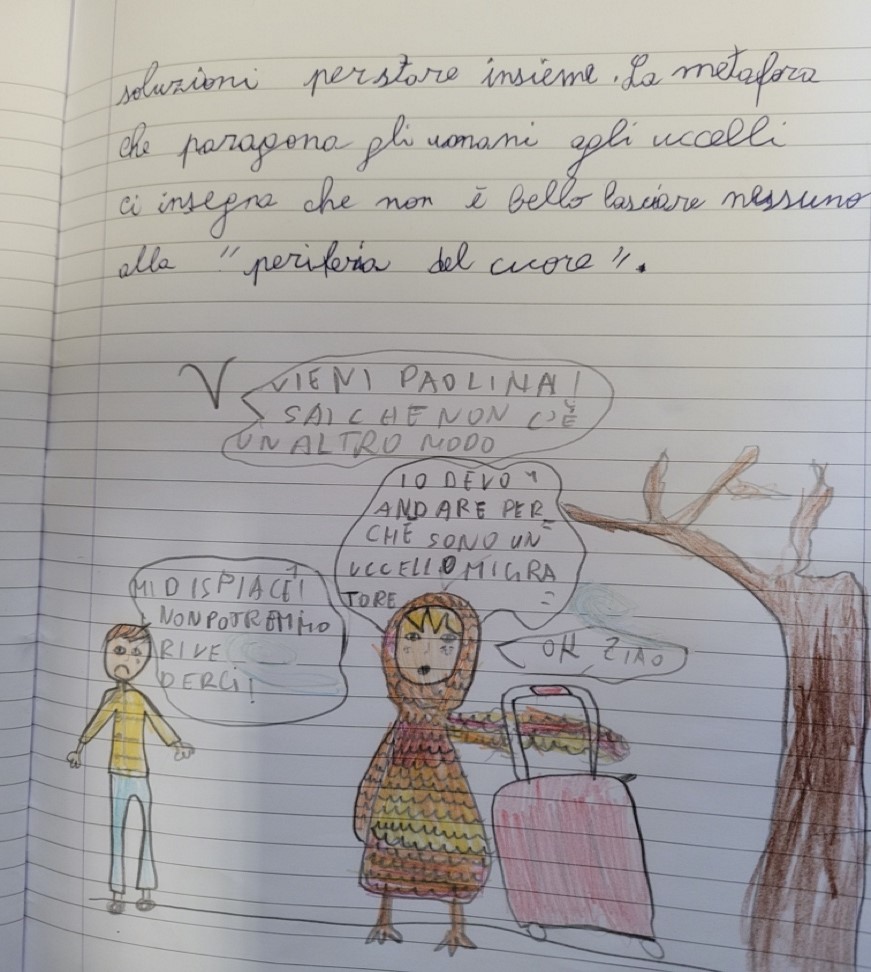 soluzioni per stare insieme. La metafora
che paragona gli umani agli uccelli
ci insegna che non è bello lasciare nessuno
alla "periferia del cuore".
VIENI PAOLINA!
SAI CHE NON C'È
UN ALTRO MODO
IO DEVO
ANDARE PER=
CHÈ SONO UN
UCCELLO MIGRA
TORE =
MI DISPIACE!
NON POTREMMO
RIVE
DERCI!
OK ZIAO